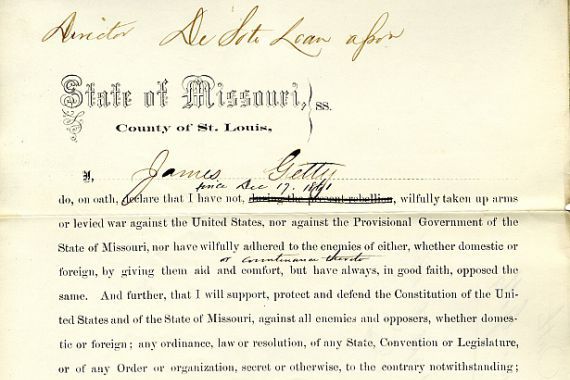 Director De Soto Loan assn
State of Missouri, } ss.
County of St. Louis,
I, James Getty
since Dec 17. 1861
do, on oath, declare that I have not, during the present rebellion, wilfully taken up arms
or levied war against the United States, nor against the Provisional Government of the
State of Missouri, nor have wilfully adhered to the enemies of either, whether domestic or
or countenance thereto
foreign, by giving them aid and comfort, but have always, in good faith, opposed the
same. And further, that I will support, protect and defend the Constitution of the Uni-
ted States and of the State of Missouri, against all enemies and opposers, whether domes-
tic or foreign; any ordinance, law or resolution, of any State, Convention or Legislature,
or of any Order or organization, secret or otherwise, to the contrary notwithstanding;